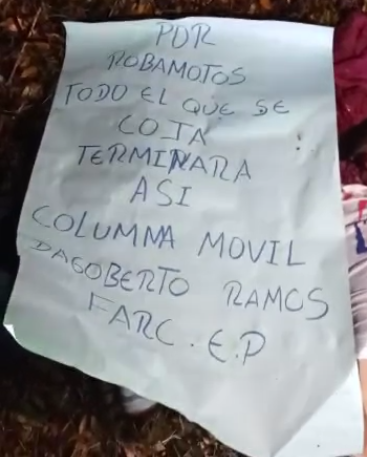 POR
ROBAMOTOS
TODO EL QUE SE
COJA
TERMINARA
ASI
COLUMNA MOVIL
DAGOBERTO RAMOS
FARC.E.P